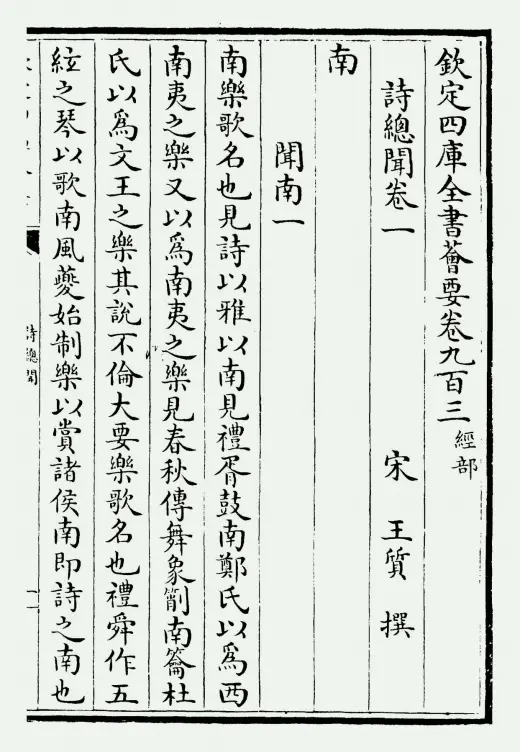 欽定四庫全書薈要卷九百三 經部
詩總聞卷一 宋 王質 撰
南
聞南一
南樂歌名也見詩以雅以南見禮胥鼓南鄭氏以為西
南夷之樂又以為南夷之樂見春秋傳舞象箾南籥杜
氏以為文王之樂其說不倫大要樂歌名也禮舜作五
絃之琴以歌南風夔始制樂以賞諸侯南即詩之南也
詩總聞